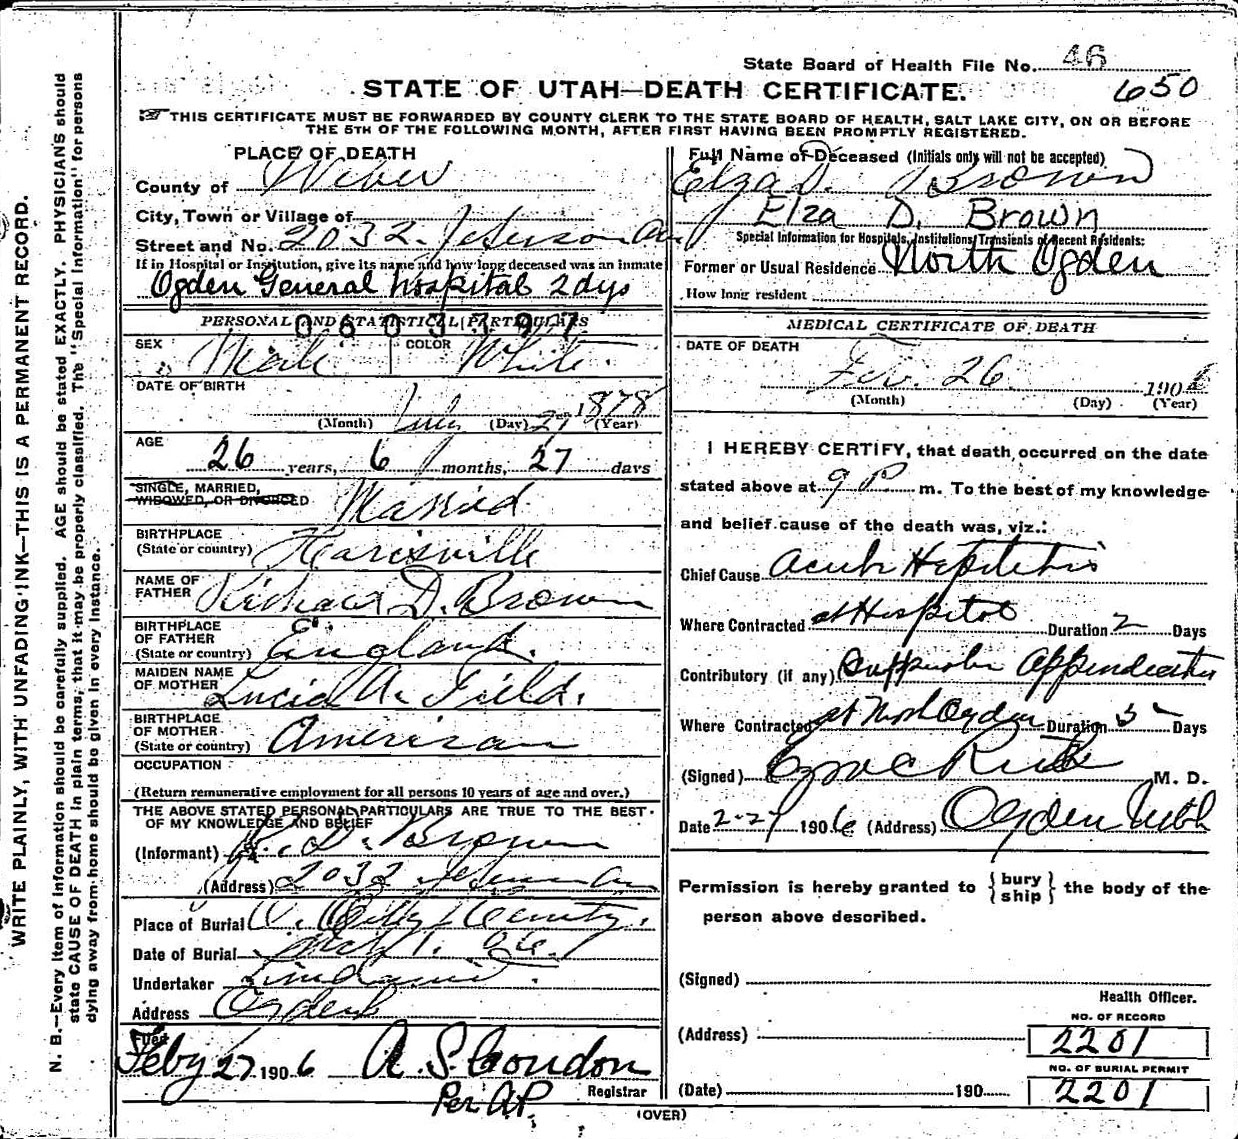 State Board of Health File No. 46
650
STATE OF UTAH—DEATH CERTIFICATE.
THIS CERTIFICATE MUST BE FORWARDED BY COUNTY CLERK TO THE STATE BOARD OF HEALTH, SALT LAKE CITY, ON OR BEFORE
THE 5TH OF THE FOLLOWING MONTH, AFTER FIRST HAVING BEEN PROMPTLY REGISTERED.
WRITE PLAINLY, WITH UNFADING INK—THIS IS A PERMANENT RECORD.
N. B.—Every item of information should be carefully supplied. AGE should be stated EXACTLY. PHYSICIANS should
state CAUSE OF DEATH in plain terms, that it may be properly classified. The "Special Information" for persons
dying away from home should be given in every instance.
PLACE OF DEATH
County of Weber
City, Town or Village of
Street and No. 2032 Jefferson Av
If in Hospital or Institution, give its name and how long deceased was an inmate
Ogden General hospital 2dys
0603397
PERSONAL AND STATISTICAL PARTICULARS
SEX Male COLOR White
DATE OF BIRTH
July 27 1878
(Month) (Day) (Year)
AGE
26 years, 6 months, 27 days
SINGLE, MARRIED,
WIDOWED, OR DIVORCED Married
BIRTHPLACE
(State or country) Harisville
NAME OF
FATHER Richard D. Brown
BIRTHPLACE
OF FATHER
(State or country) England.
MAIDEN NAME
OF MOTHER Lucid A. Field.
BIRTHPLACE
OF MOTHER
(State or country) American
OCCUPATION
(Return remunerative employment for all persons 10 years of age and over.)
THE ABOVE STATED PERSONAL PARTICULARS ARE TRUE TO THE BEST
OF MY KNOWLEDGE AND BELIEF
(Informant) R. D. Brown
(Address) 2032 Jefferson Av
Place of Burial O. City Cemity.
Date of Burial Mch 1. 06.
Undertaker
Address Ogden
Filed
Feby 27 1906 A. S. Condon
Registrar
Per AP.
Full Name of Deceased (Initials only will not be accepted)
Elza D. Brown
Elza D. Brown
Special Information for Hospitals, Institutions, Transients or Recent Residents:
Former or Usual Residence North Ogden
How long resident
MEDICAL CERTIFICATE OF DEATH
DATE OF DEATH
Feb. 26 1906
(Month) (Day) (Year)
I HEREBY CERTIFY, that death occurred on the date
stated above at 9 P m. To the best of my knowledge
and belief cause of the death was, viz.:
Chief Cause Acute Hepititis
Where Contracted at Hospital Duration 2 Days
Contributory (if any) Appendicitis
Where Contracted at North Ogden Duration 5 Days
(Signed) M. D.
Date 2-27 1906 (Address) Ogden Utah
Permission is hereby granted to { bury ship } the body of the
person above described.
(Signed)
Health Officer.
(Address)
NO. OF RECORD
2201
NO. OF BURIAL PERMIT
2201
(Date) 190
(OVER)